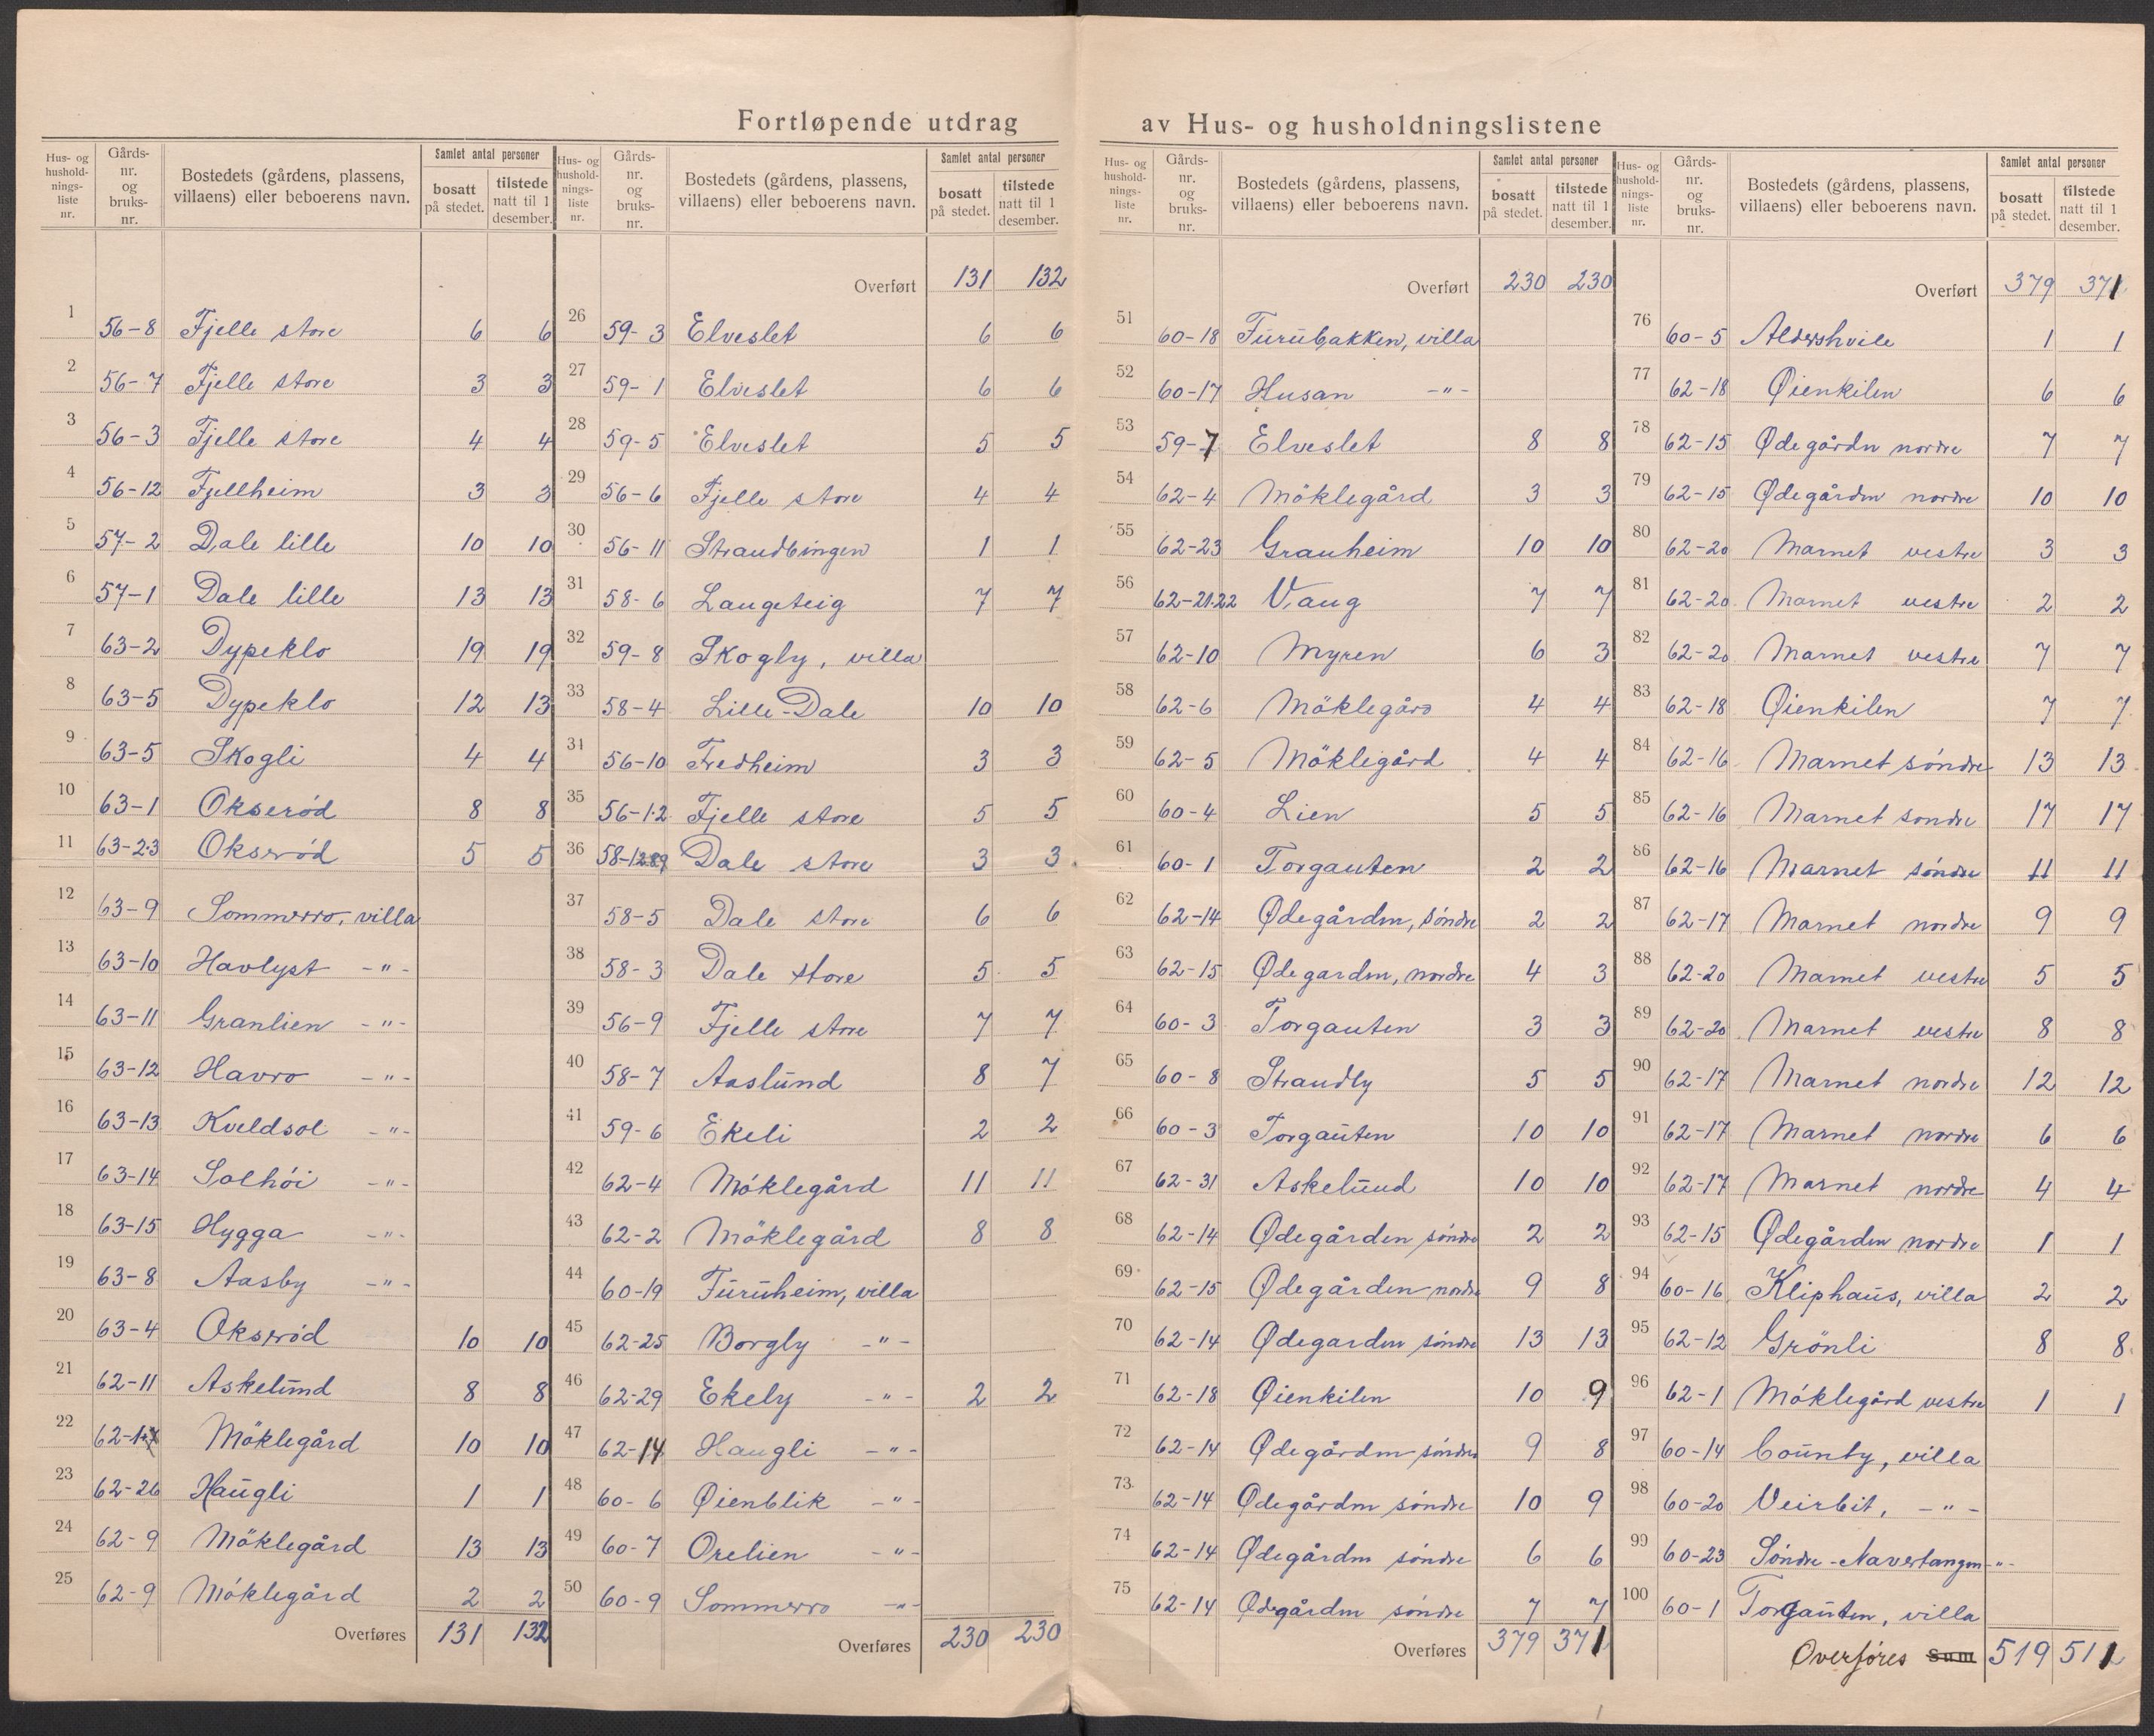 Fortløpende utdrag av Hus- og husholdningslistene
Hus- og hushold- nings- liste nr. Gårds- nr. og bruks- nr. Bostedets (gårdens, plassens, villaens) eller beboerens navn. Samlet antal personer bosatt på stedet. tilstede natt til 1 desember.
1 56-8 Fjelle store 6 6
2 56-7 Fjelle store 3 3
3 56-3 Fjelle store 4 4
4 56-12 Fjellheim 3 3
5 57-2 Dale lille 10 10
6 57-1 Dale lille 13 13
7 63-2 Dypeklo 19 19
8 63-5 Dypeklo 12 13
9 63-5 Skogli 4 4
10 63-1 Okseröd 8 8
11 63-2.3 Okseröd 5 5
12 63-9 Sommerro, villa
13 63-10 Havlyst -"-
14 63-11 Granlien -"-
15 63-12 Havro -"-
16 63-13 Kveldsol -"-
17 63-14 Solhöi -"-
18 63-15 Hygga -"-
19 63-8 Aasby -"-
20 63-4 Okseröd 10 10
21 62-11 Askelund 8 8
22 Möklegård 10 10
23 62-26 Haugli 1 1
24 62-9 Möklegård 13 13
25 62-9 Möklegård 2 2
Overføres 131 132
Hus- og hushold- nings- liste nr. Gårds- nr. og bruks- nr. Bostedets (gårdens, plassens, villaens) eller beboerens navn. Samlet antal personer bosatt på stedet. tilstede natt til 1 desember.
Overført 131 132
26 59-3 Elveslet 6 6
27 59-1 Elveslet 6 6
28 59-5 Elveslet 5 5
29 56-6 Fjelle store 4 4
30 56-11 Strandbingen 1 1
31 58-6 Langeteig 7 7
32 59-8 Skogly, villa
33 58-4 Lille-Dale 10 10
31 56-10 Fredheim 3 3
35 56-1.2 Fjelle store 5 5
36 Dale store 3 3
37 58-5 Dale store 6 6
38 58-3 Dale store 5 5
39 56-9 Fjelle store 7 7
40 58-7 Aaslund 8 7
41 59-6 Ekeli 2 2
42 62-4 Möklegård 11 11
43 62-2 Möklegård 8 8
44 60-19 Furuheim, villa
45 62-25 Borgly -"-
46 62-29 Ekely -"- 2 2
47 62-14 Haugli -"-
48 60-6 Øienblik -"-
49 60-7 Orelien -"-
50 60-9 Sommerro -"-
Overføres 230 230
Hus- og hushold- nings- liste nr. Gårds- nr. og bruks- nr. Bostedets (gårdens, plassens, villaens) eller beboerens navn. Samlet antal personer bosatt på stedet. tilstede natt til 1 desember.
Overført 230 230
51 60-18 Furubakken, villa
52 60-17 Husan -"-
53 59-7 Elveslet 8 8
54 62-4 Möklegård 3 3
55 62-23 Granheim 10 10
56 62-21.22 Vang 7 7
57 62-10 Myren 6 3
58 62-6 Möklegård 4 4
59 62-5 Möklegård 4 4
60 60-4 Lien 5 5
61 60-1 Torgauten 2 2
62 62-14 Ødegården, söndre 2 2
63 62-15 Ødegarden, nordre 4 3
64 60-3 Torgauten 3 3
65 60-8 Strandly 5 5
66 60-3 Torgauten 10 10
67 62-31 Askelund 10 10
68 62-14 Ødegården söndre 2 2
69 62-15 Ødegården nordre 9 8
70 62-14 Ødegarden söndre 13 13
71 62-18 Øienkilen 10 9
72 62-14 Ødegården söndre 9 8
73 62-14 Ødegården söndre 10 9
74 62-14 Ødegården söndre 6 6
75 62-14 Ødegården söndre 7 7
Overføres 379 371
Hus- og hushold- nings- liste nr. Gårds- nr. og bruks- nr. Bostedets (gårdens, plassens, villaens) eller beboerens navn. Samlet antal personer bosatt på stedet. tilstede natt til 1 desember.
Overført 379 371
76 60-5 Aldershvile 1 1
77 62-18 Øienkilen 6 6
78 62-15 Ødegården nordre 7 7
79 62-15 Ødegården nordre 10 10
80 62-20 Marnet vestre 3 3
81 62-20 Marnet vestre 2 2
82 62-20 Marnet vestre 7 7
83 62-18 Øienkilen 7 7
84 62-16 Marnet söndre 13 13
85 62-16 Marnet sondre 17 17
86 62-16 Marnet söndre 11 11
87 62-17 Marnet nordre 9 9
88 62-20 Marnet vestre 5 5
89 62-20 Marnet vestre 8 8
90 62-17 Marnet nordre 12 12
91 62-17 Marnet nordre 6 6
92 62-17 Marnet nordre 4 4
93 62-15 Ødegården nordre 1 1
94 60-16 Kliphaus, villa 2 2
95 62-12 Grönli 8 8
96 62-1 Möklegård vestre 1 1
97 60-14 County, villa
98 60-20 Veirbit, -"-
99 60-23 Söndre-Navertangen -"-
100 60-1 Torgauten, villa
Overföres Sum 519 511